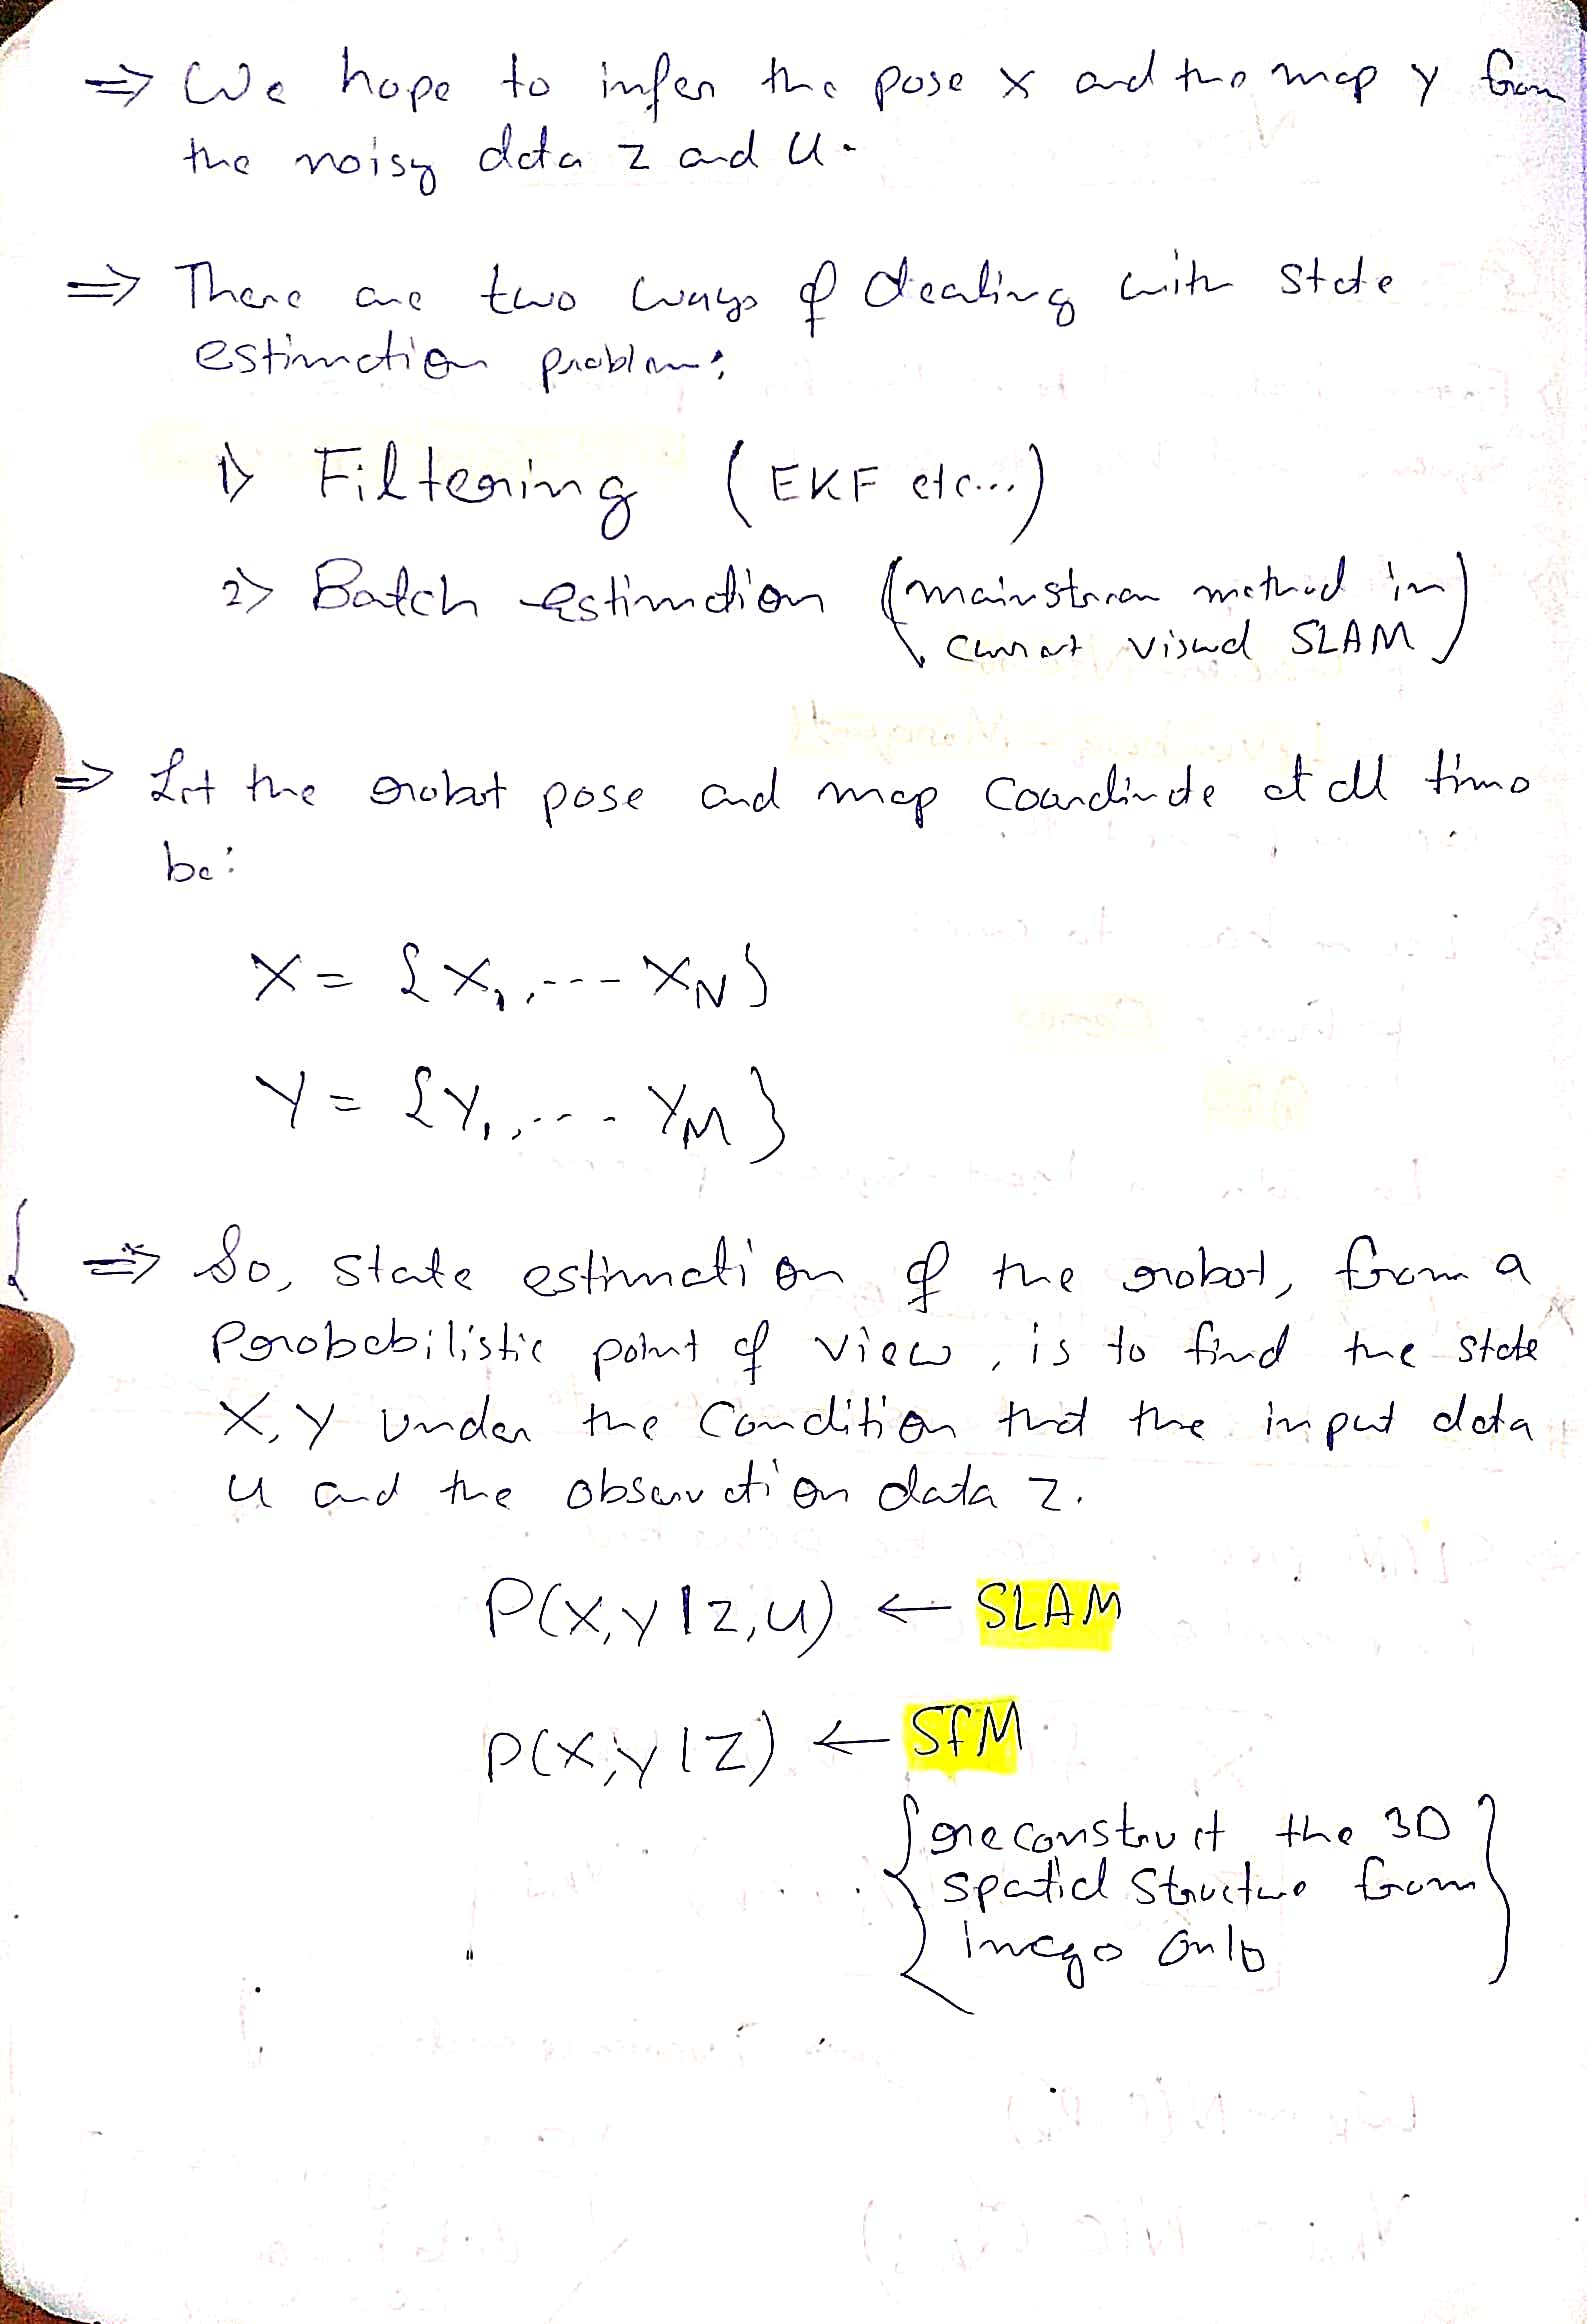 ⇒ We hope to infer the pose x and the map y from
the noisy data z and u.
⇒ There are two ways of dealing with state
estimation problem:
1> Filtering (EKF etc...)
2> Batch estimation (mainstream method in
current visual SLAM)
⇒ Let the robot pose and map coordinate at all time
be:
X = {X₁,---XN}
Y = {Y₁,---YM}
⇒ So, state estimation of the robot, from a
Probabilistic point of view, is to find the state
X, Y under the condition that the input data
u and the observation data z.
P(X,Y|Z,U) ← SLAM
P(X,Y|Z) ← SfM
{reconstruct the 3D
spatial structure from
image only}